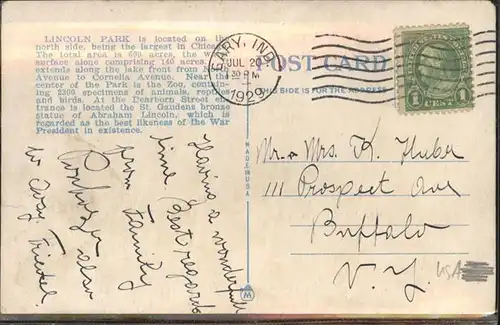 LINCOLN PARK is located on the
north side, being the largest in Chicago.
The total area is 600 acres, the water
surface alone comprising 140 acres. It
extends along the lake front from North
Avenue to Cornelia Avenue. Near the
center of the Park is the Zoo, contain-
ing 2200 specimens of animals, reptiles
and birds. At the Dearborn Street en-
trance is located the St. Gaudens bronze
statue of Abraham Lincoln, which is
regarded as the best likeness of the War
President in existence.
GARY, IND.
JUL 20
30 PM
1929
POST CARD
THIS SIDE IS FOR THE ADDRESS
1 CENT 1
MADE IN USA
Mr. & Mrs. K. Huber
111 Prospect Ave
Buffalo
N.Y.
USA
Having a wonderful
time. Best regards
from family
also
to
W